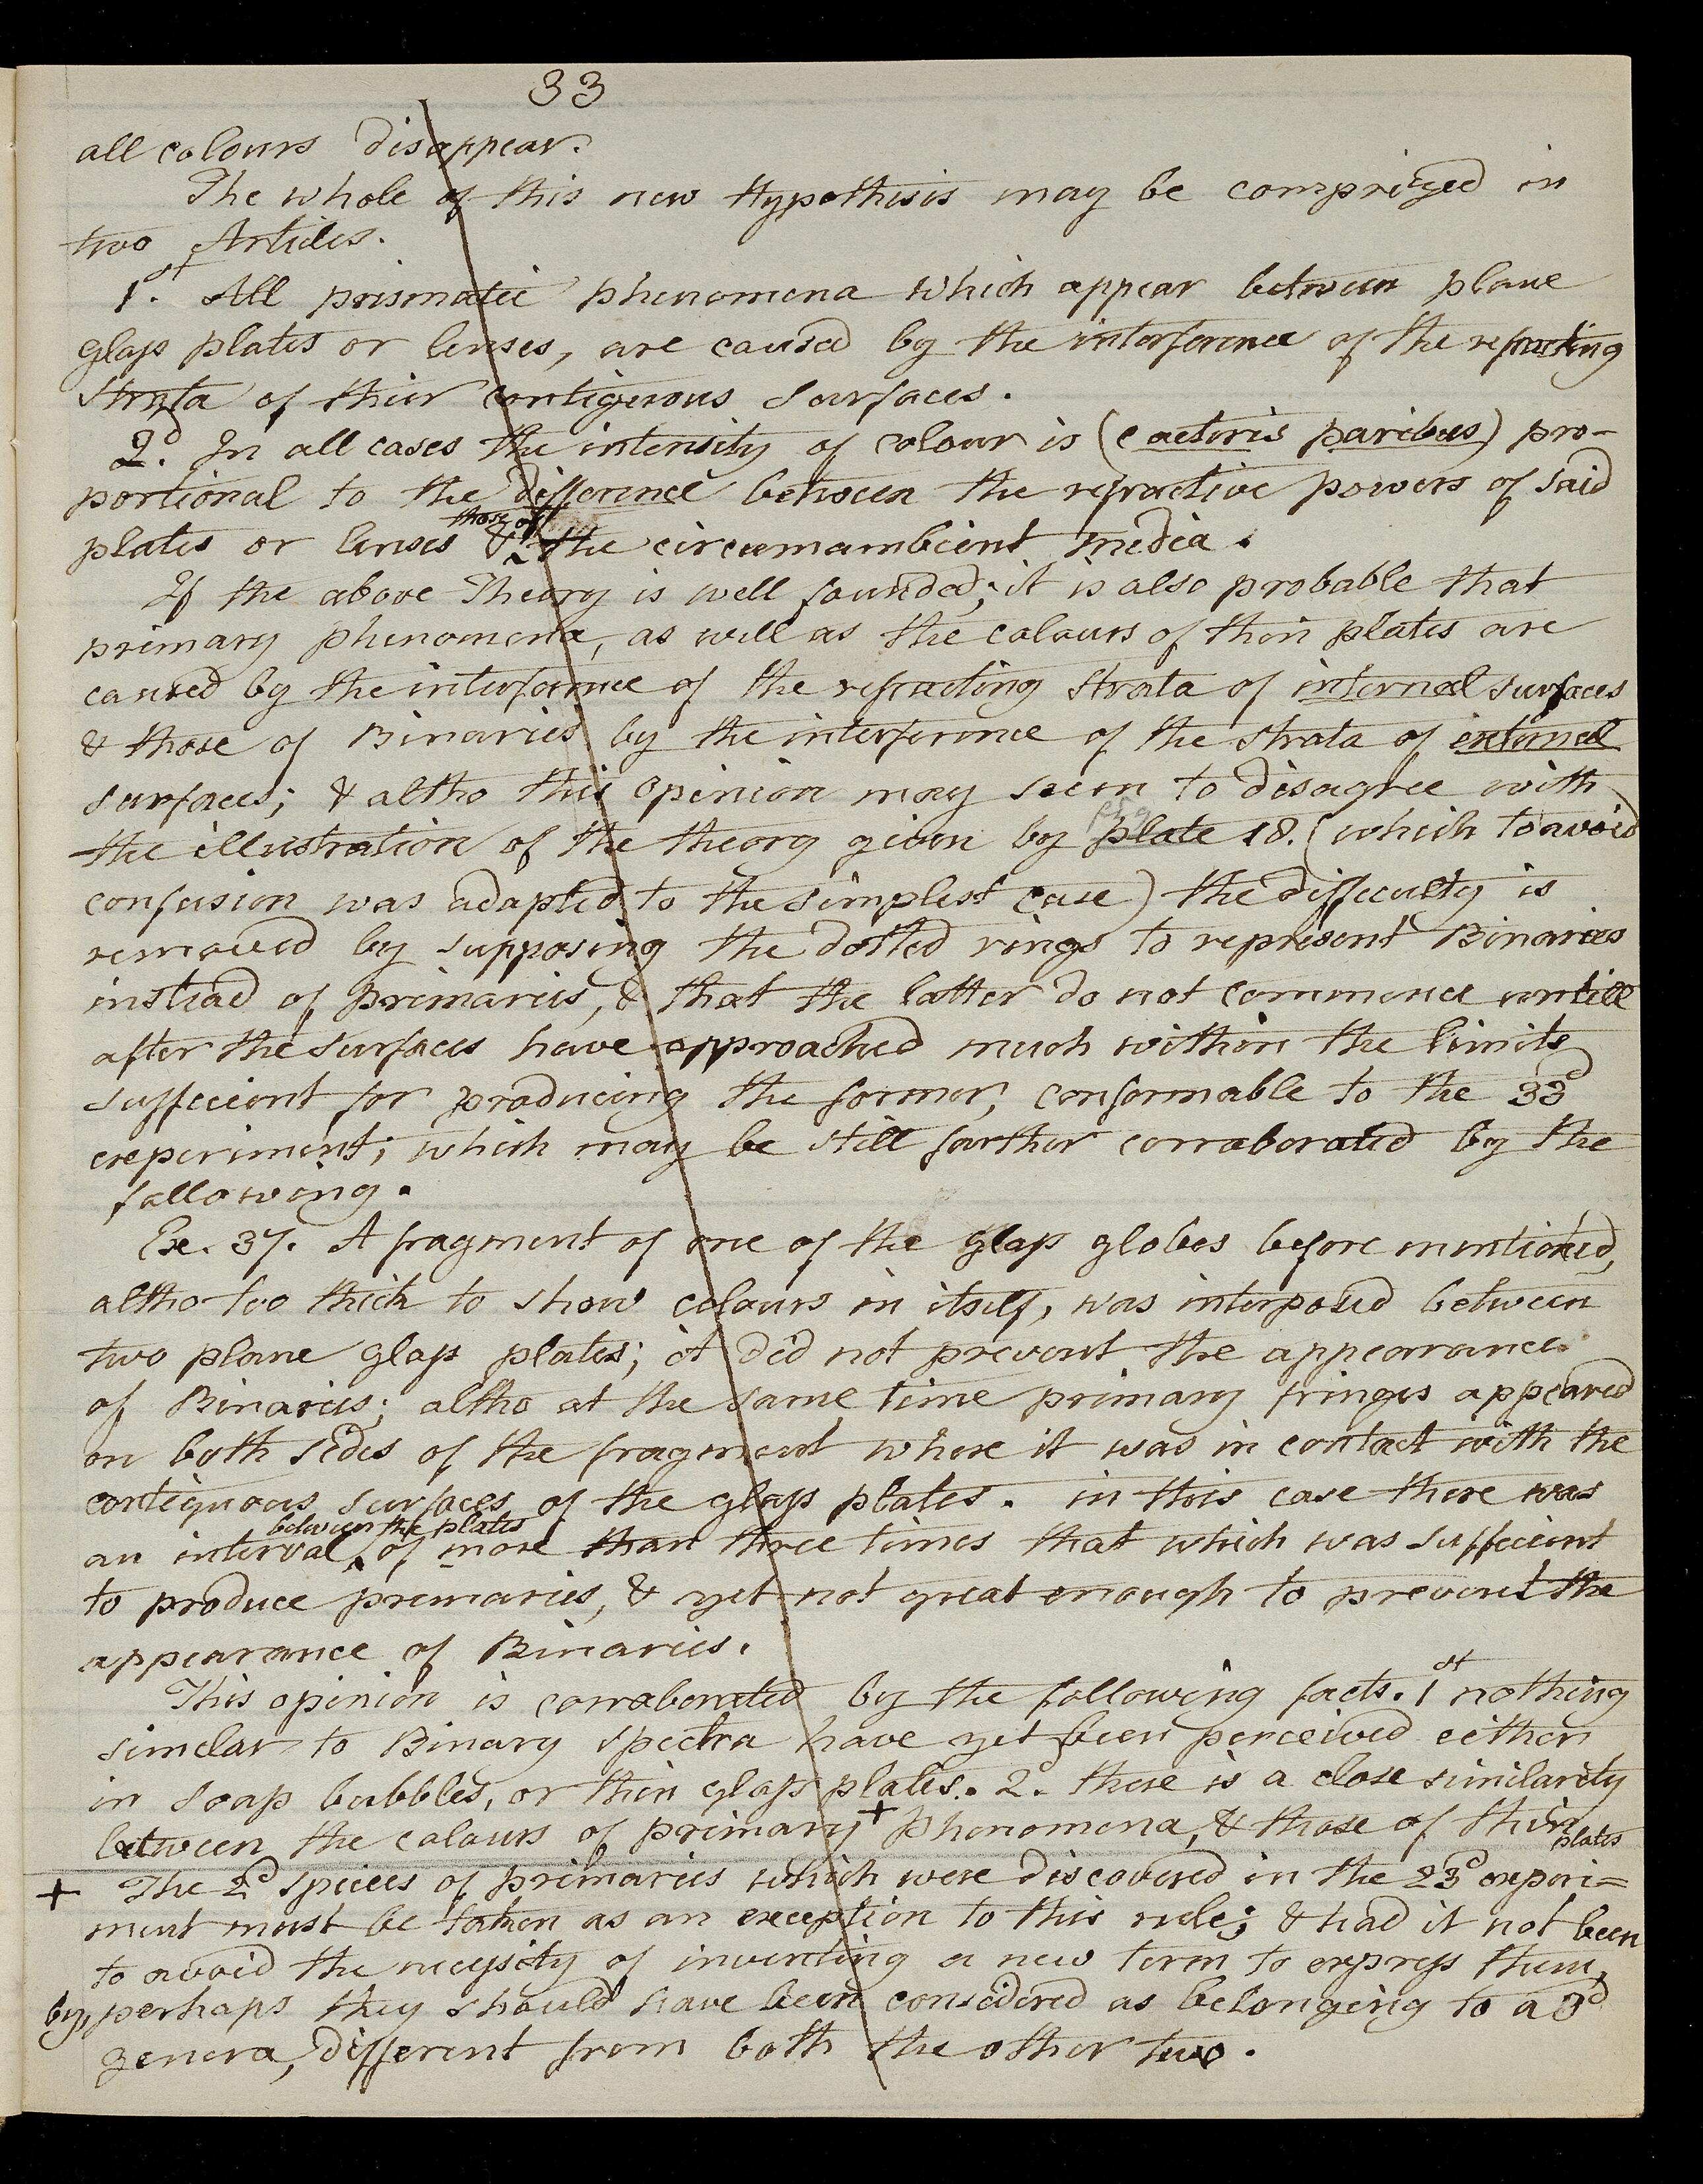 33
all colours disappear.
The whole of this new Hypothisis may be comprized in
two Articles.
1st. All prismatic phenomena which appear between plane
glass plates or lenses, are caused by the interference of the refracting
strata of their contiguous surfaces.
2d. In all cases the intensity of colour is (caeteris paribus) pro-
portional to the difference between the refractive powers of said
those of
plates or lenses & the circumambient media.
If the above Theory is well founded; it is also probable that
primary phenomena, as well as the colours of thin plates are
caused by the interference of the refracting strata of internal surfaces
& those of Binaries by the interference of the strata of external
surfaces; & altho this opinion may seem to disagree with
fig
the illustration of the theory given by plate 18. (which to avoid
confusion was adapted to the simplest case) the difficulty is
removed by supposing the dotted rings to represent Binaries
instead of primaries, & that the latter do not commence untill
after the surfaces have approached much within the limits
sufficient for producing the former, conformable to the 33d
experiment; which may be still farther corraborated by the
following.
Ex. 37. A fragment of one of the glass globes before mentioned,
altho too thick to show colours in itself, was interposed between
two plane glass plates; it did not prevent the appearance
of Binaries; altho at the same time primary fringes appeared
on both sides of the fragment where it was in contact with the
contiguous surfaces of the glass plates. in this case there was
between the plates
an interval of more than three times that which was sufficient
to produce primaries, & yet not great enough to prevent the
appearance of Binaries.
This opinion is corraborated by the following facts. 1st nothing
similar to Binary spectra have yet been perceived either
in soap bubbles, or thin glass plates. 2d. there is a close similarity
between the colours of primary + phenomena, & those of thin
plates
+ The 2d species of primaries which were discovered in the 23d experi=
ment must be taken as an exception to this rule; & had it not been
to avoid the necessity of inventing a new term to express them
by, perhaps they should have been considered as belonging to a 3d
genera, different from both the other two.